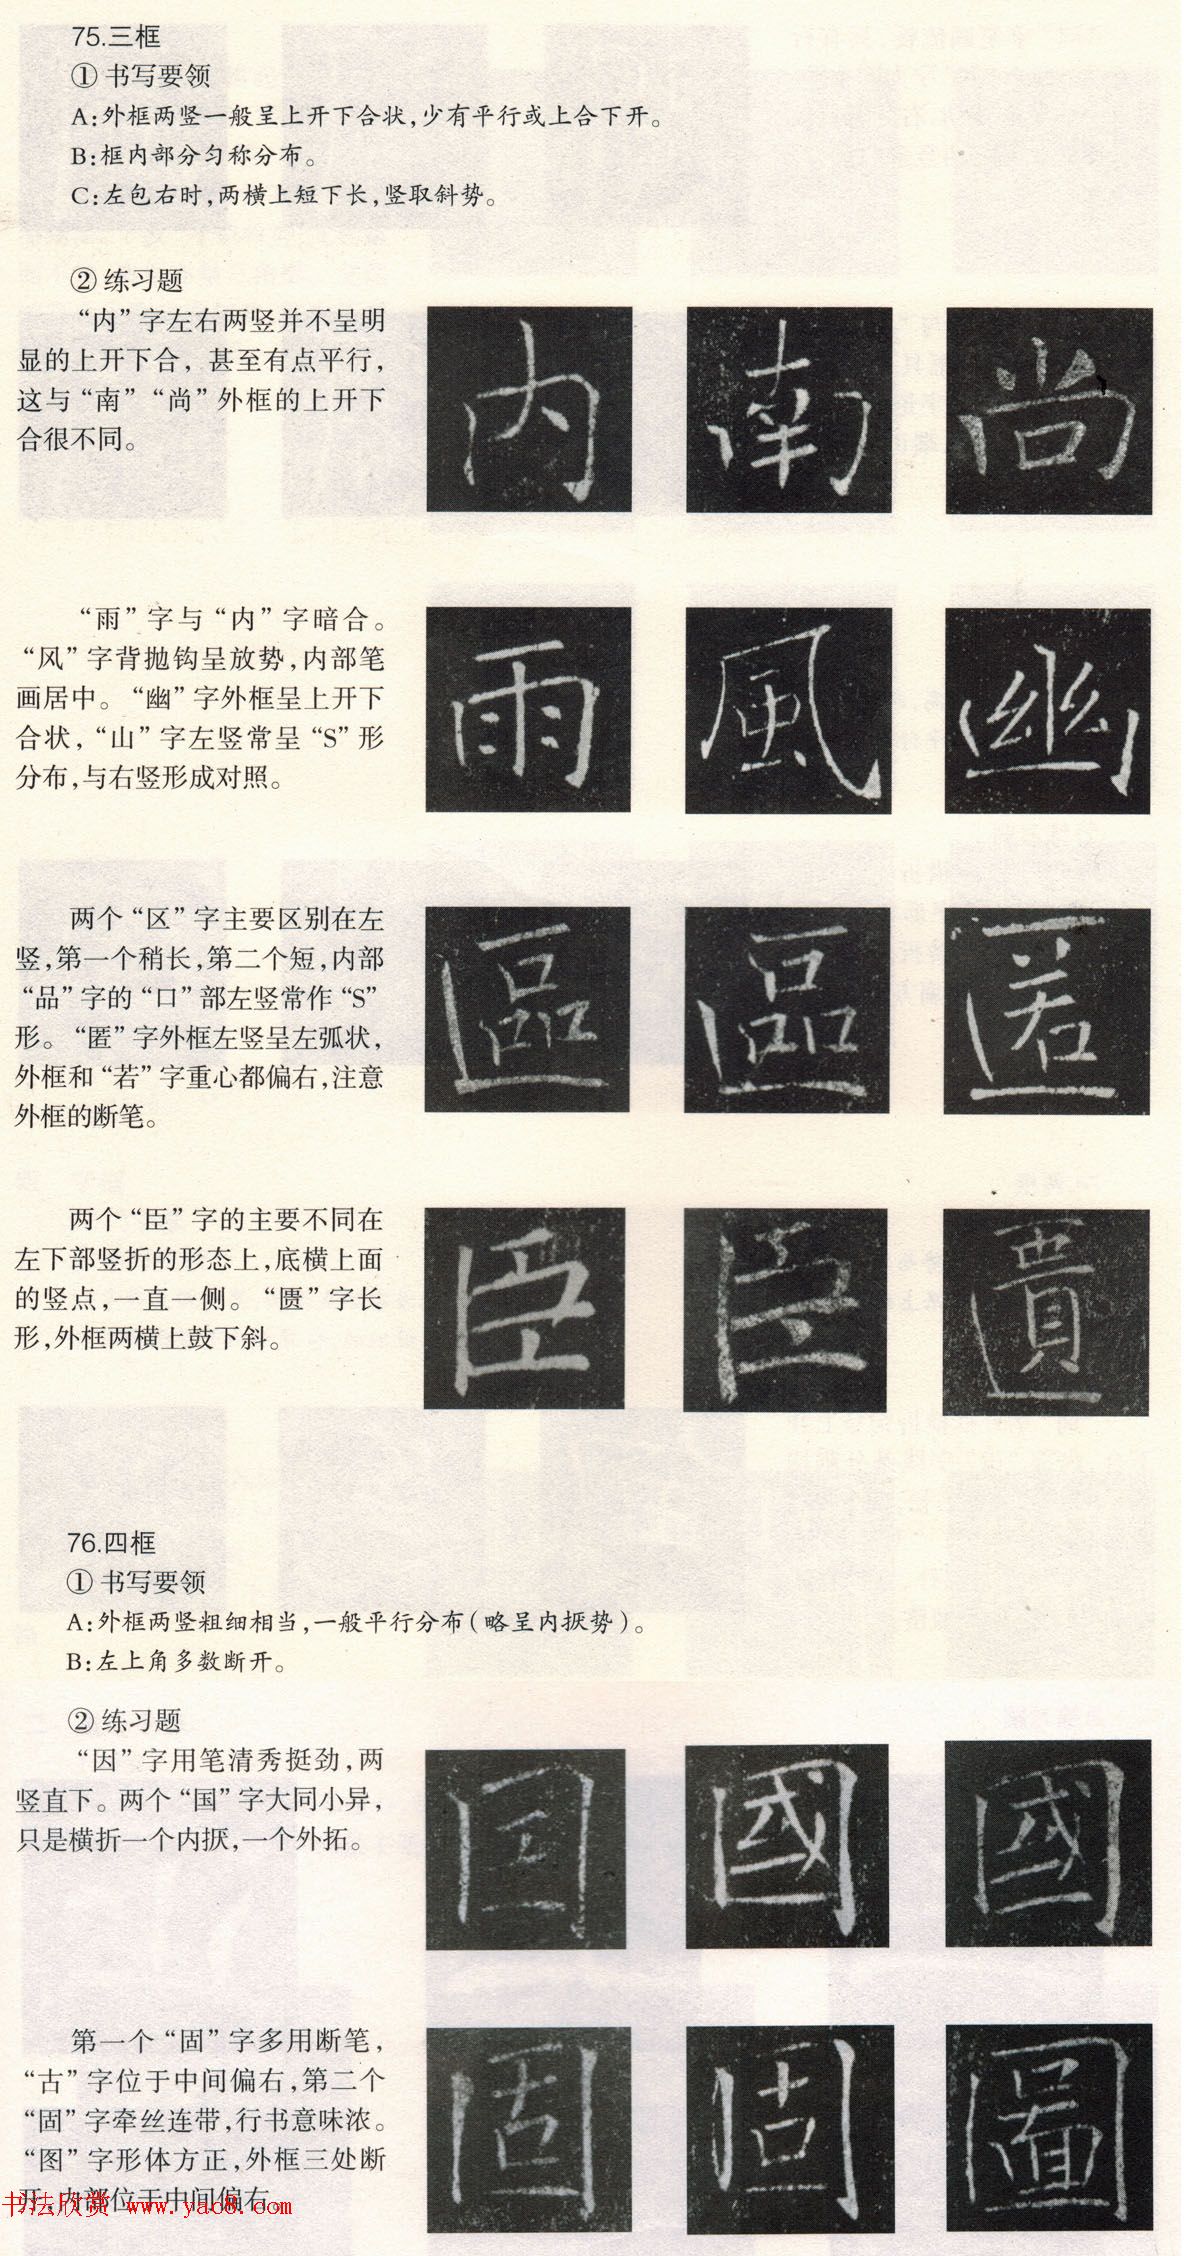 75.三框
① 书写要领
A:外框两竖一般呈上开下合状,少有平行或上合下开。
B:框内部分匀称分布。
C:左包右时,两横上短下长,竖取斜势。
② 练习题
“内”字左右两竖并不呈明
显的上开下合, 甚至有点平行,
这与“南”“尚”外框的上开下
合很不同。
内 南 尚
“雨”字与“内”字暗合。
“风”字背抛钩呈放势,内部笔
画居中。“幽”字外框呈上开下
合状,“山”字左竖常呈“S”形
分布,与右竖形成对照。
雨 風 幽
两个“区”字主要区别在左
竖,第一个稍长,第二个短,内部
“品”字的“口”部左竖常作“S”
形。“匿”字外框左竖呈左弧状,
外框和“若”字重心都偏右,注意
外框的断笔。
區 區 匿
两个“臣”字的主要不同在
左下部竖折的形态上,底横上面
的竖点,一直一侧。“匮”字长
形,外框两横上鼓下斜。
臣 臣 匱
76.四框
① 书写要领
A:外框两竖粗细相当,一般平行分布(略呈内捩势)。
B:左上角多数断开。
② 练习题
“因”字用笔清秀挺劲,两
竖直下。两个“国”字大同小异,
只是横折一个内捩,一个外拓。
因 國 國
第一个“固”字多用断笔,
“古”字位于中间偏右,第二个
“固”字牵丝连带,行书意味浓。
“图”字形体方正,外框三处断
开,内部位于中间偏右
固 固 圖
书法欣赏 www.yac8.com